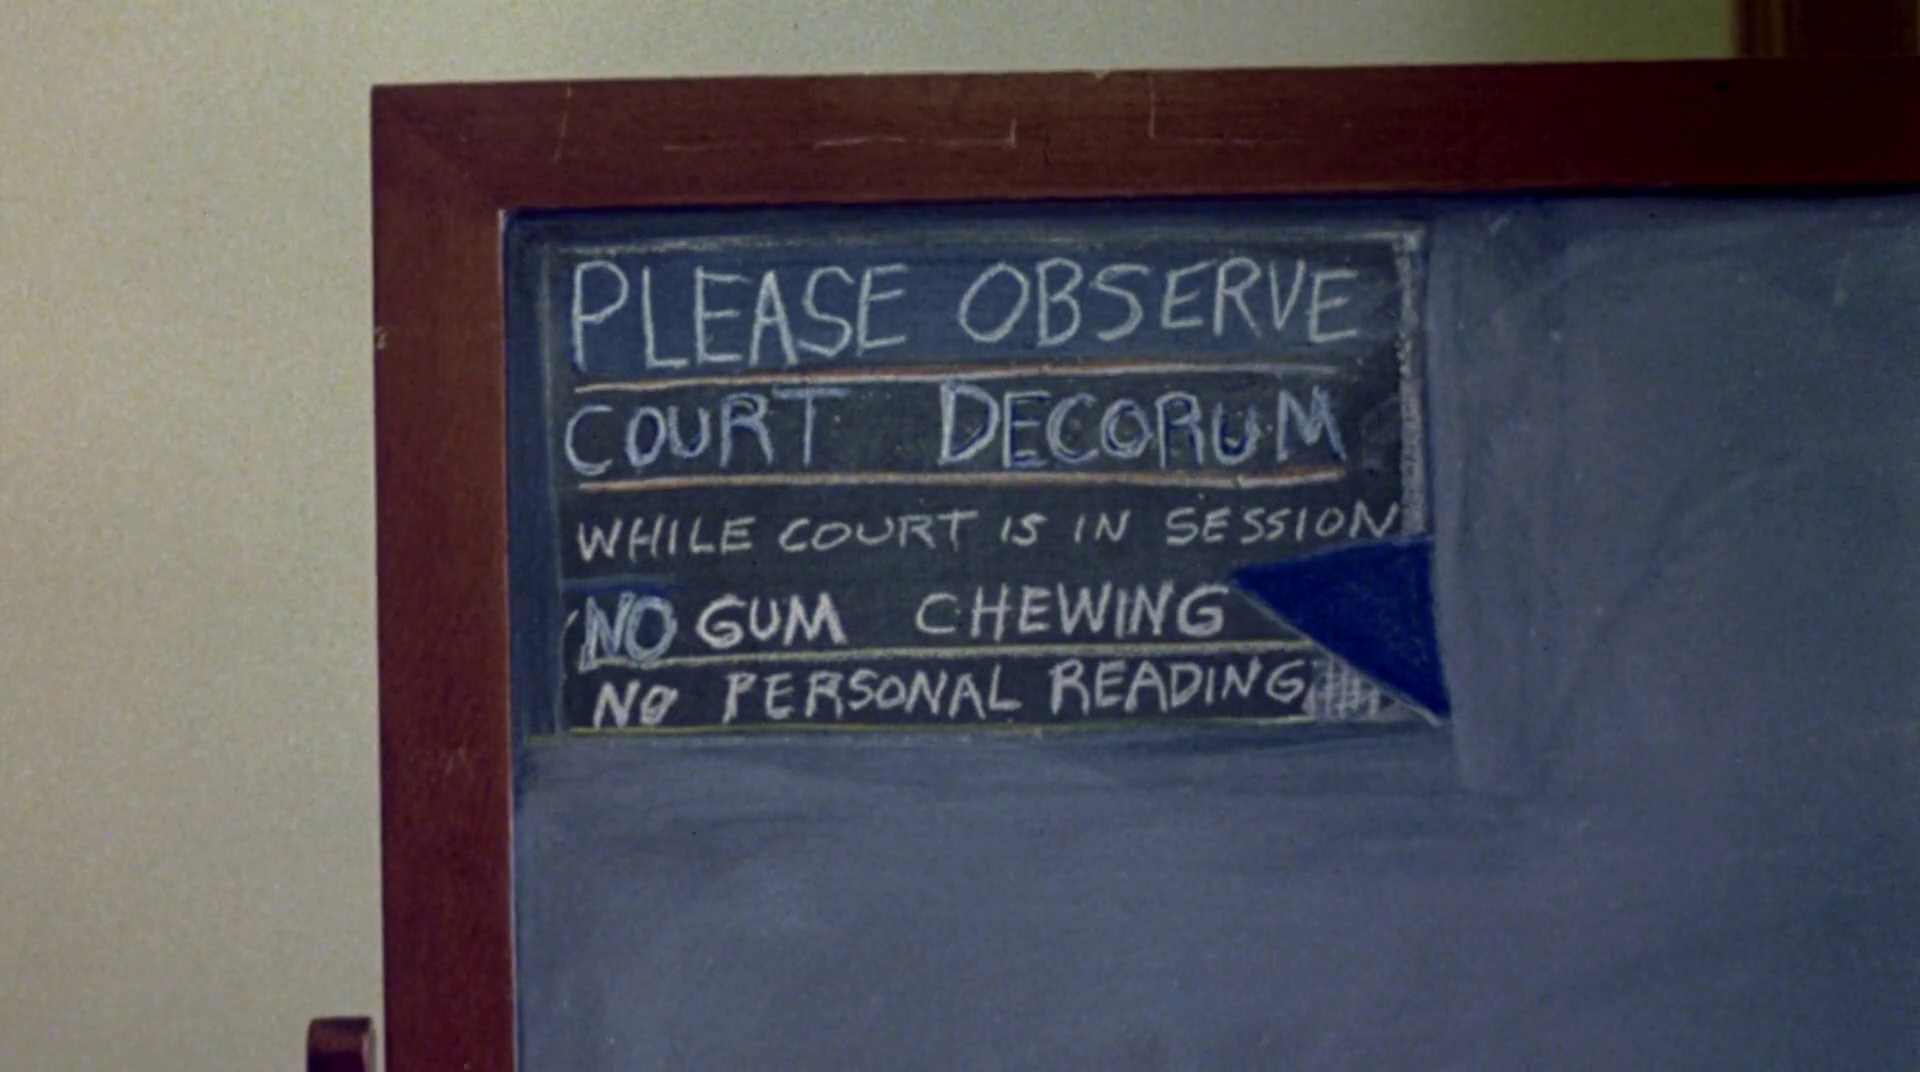 PLEASE OBSERVE
COURT DECORUM
WHILE COURT IS IN SESSION
NO GUM CHEWING
NO PERSONAL READING